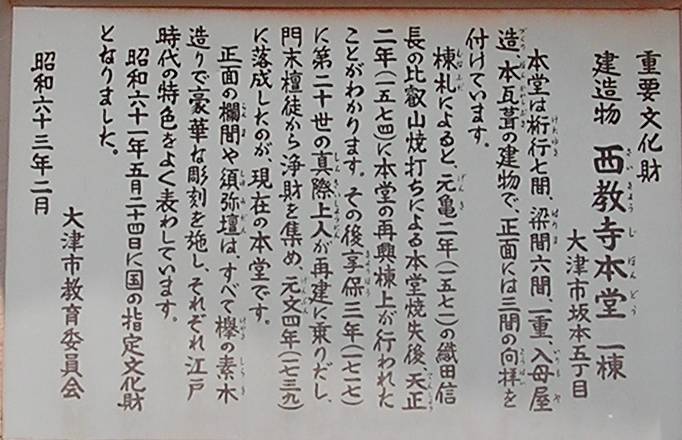 重要文化財
建造物 西教寺本堂 一棟
大津市坂本五丁目
本堂は桁行七間、梁間六間、一重、入母屋
造、本瓦葺の建物で、正面には三間の向拝を
付けています。
棟札によると、元亀二年(一五七一)の織田信
長の比叡山焼打ちによる本堂焼失後、天正
二年(一五七四)に本堂の再興棟上が行われた
ことがわかります。その後享保三年(一七一七)
に第二十世の真際上人が再建に乗りだし、
門末檀徒から浄財を集め、元文四年(一七三九)
に落成したのが、現在の本堂です。
正面の欄間や須弥壇は、すべて欅の素木
造りで豪華な彫刻を施し、それぞれ江戸
時代の特色をよく表わしています。
昭和六十一年五月二十四日に国の指定文化財
となりました。
大津市教育委員会
昭和六十三年二月